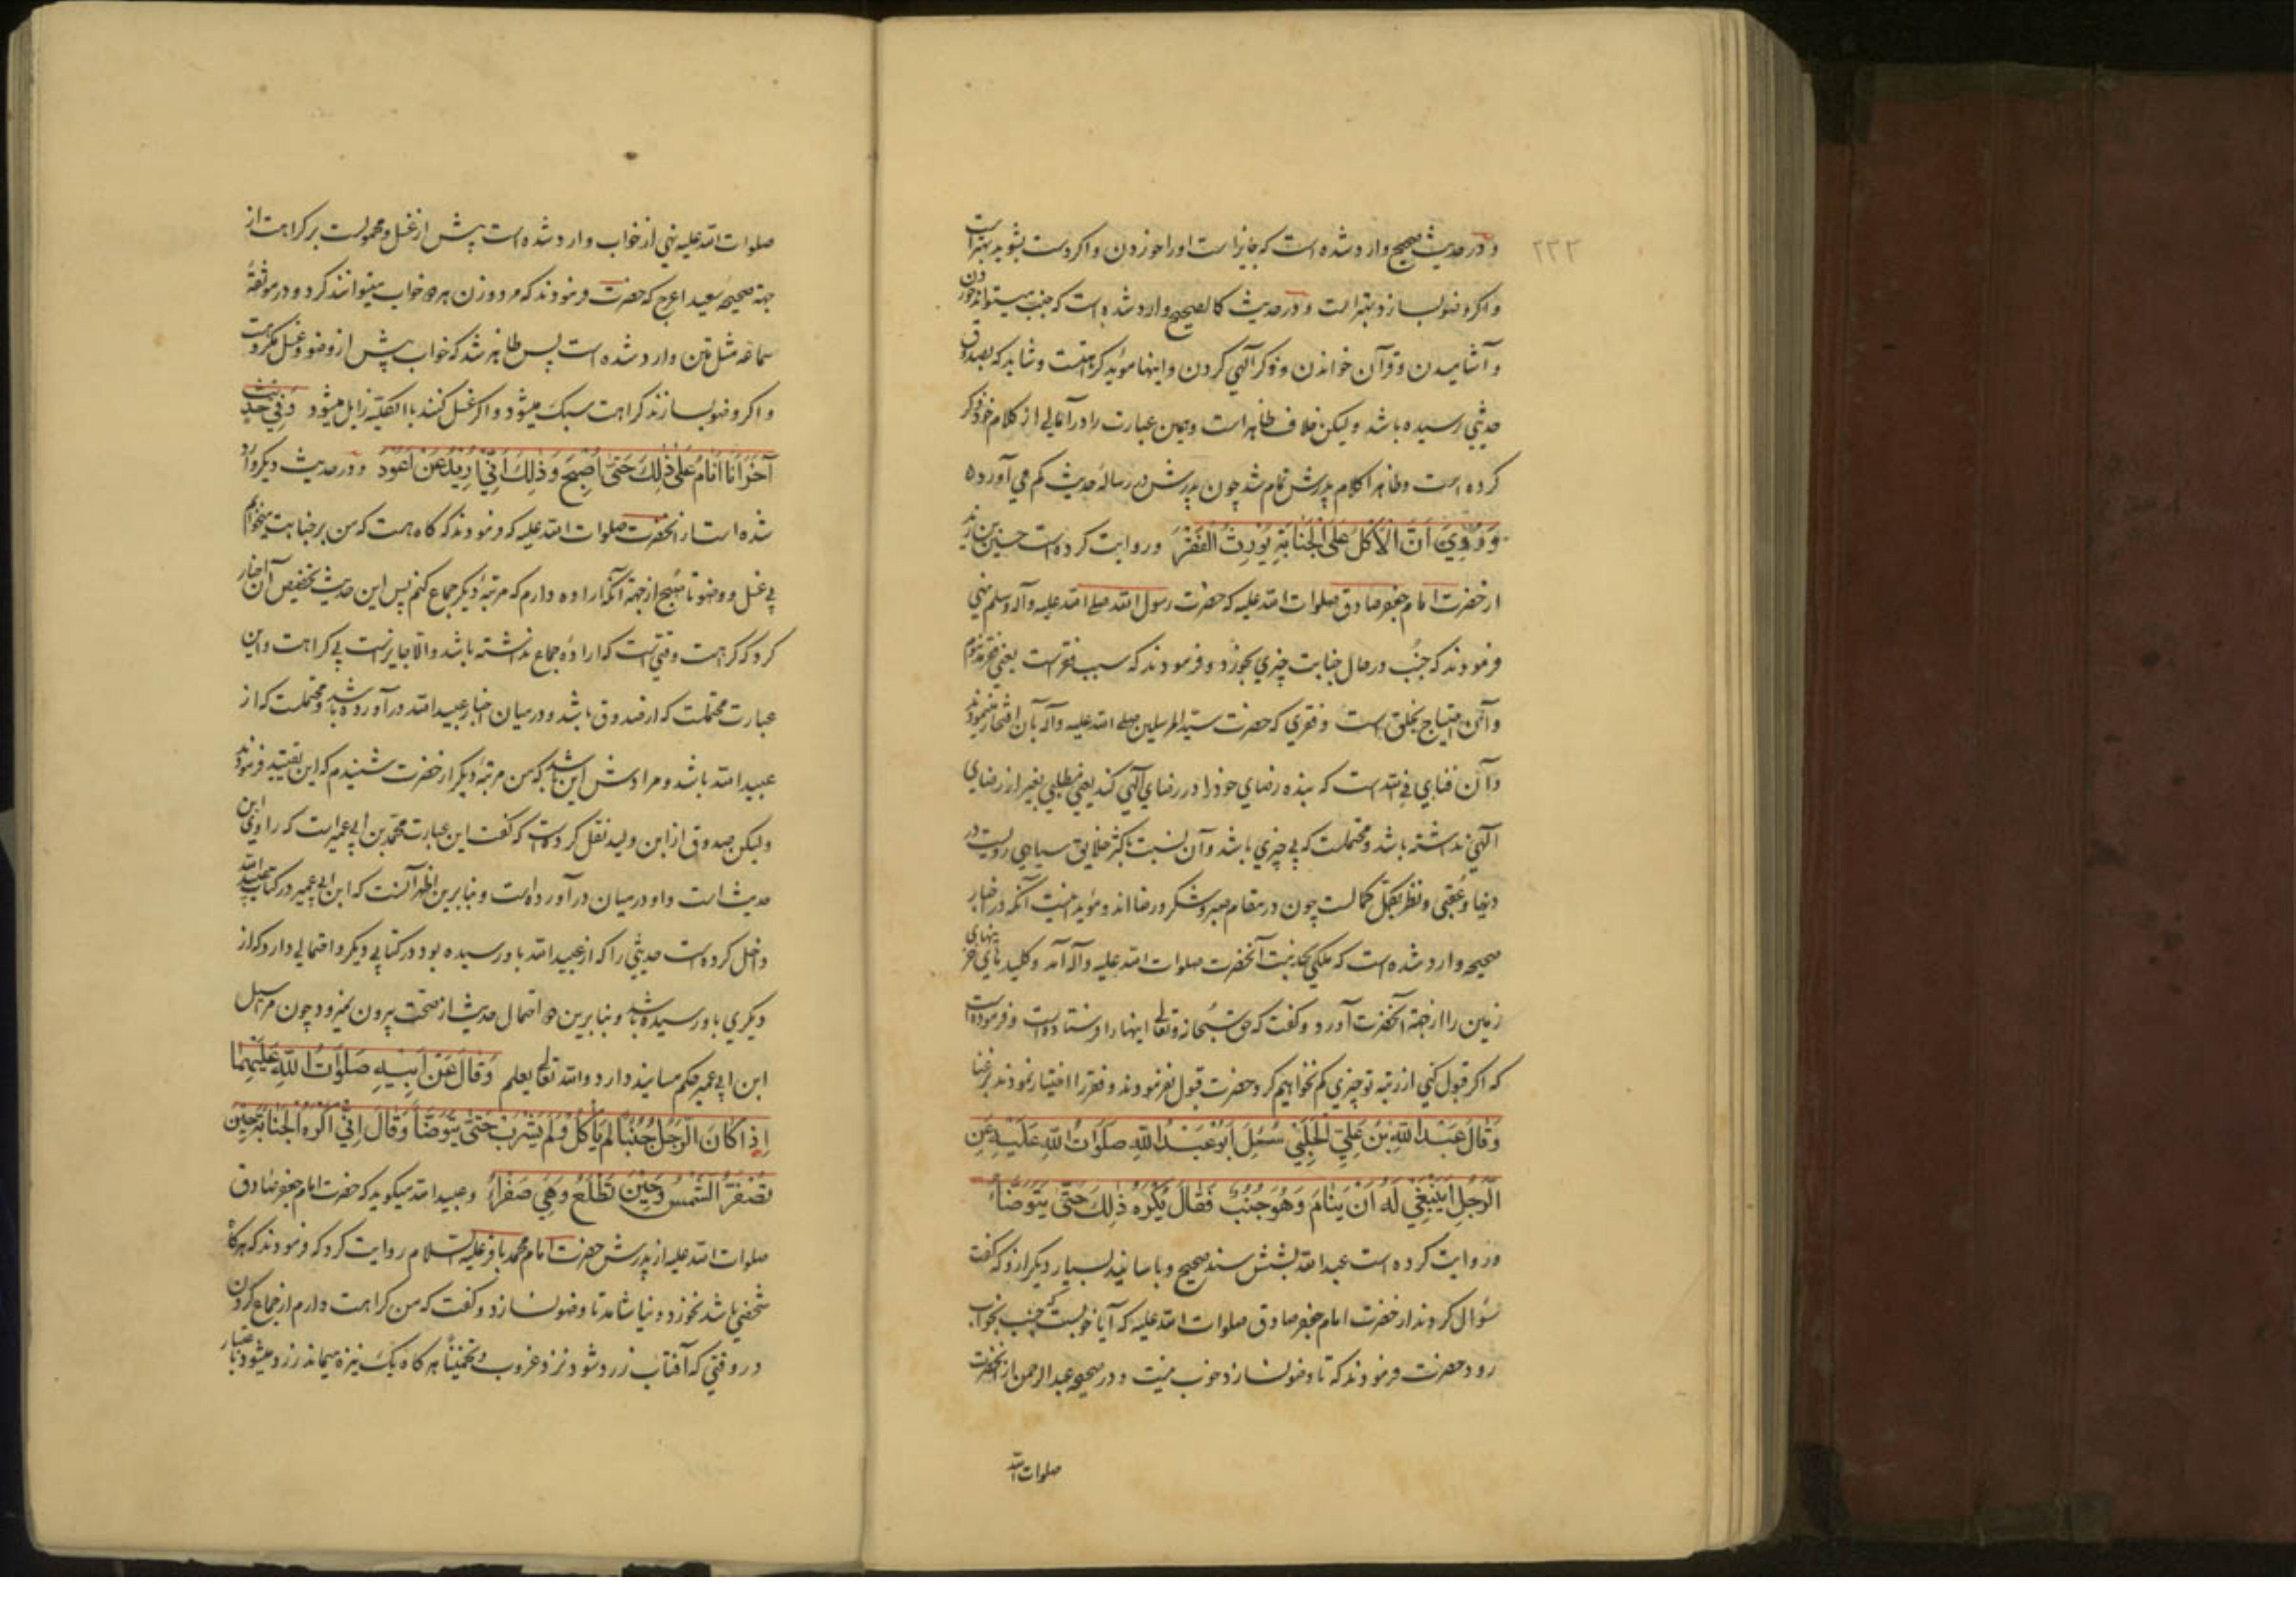 ۲۳۳
و در حدیث صحیح وارد شده است که جایز است او را خوردن و اکر دست بشوید بهتر است
و اکر وضو بسازد بهتر است و در حدیث کالصحیح وارد شده است که جنب میتواند خوردن
و آشامیدن و قرآن خواندن و ذکر آلهی کردن و اینها مؤید کراهتست و شاید که بصدوق
حدیثی رسیده باشد و لیکن خلاف ظاهر است و همین عبارت را در آمالی از کلام خود ذکر
کرده است و ظاهرا کلام پدرش تمام شد چون پدرش در رساله حدیث کم می آورده
وَ رُوِيَ اَنَّ الْاَكْلَ عَلَى الْجَنَابَةِ يُورِثُ الْفَقْرَ و روایت کرده است حسین بن زید
از حضرت امام جعفر صادق صلوات الله علیه که حضرت رسول الله صلی الله علیه و آله و سلم نهی
فرمودند که جنب در حال جنابت چیزی بخورد و فرمودند که سبب فقر است یعنی فقر مذموم
و آن احتیاج بخلق است و فقری که حضرت سید المرسلین صلی الله علیه و آله بآن افتخار مینمودند
و آن فنای فی الله است که بنده رضای خود را در رضای آلهی کند یعنی مطلبی بغیر از رضای
آلهی نداشته باشد و محتملست که بی چیزی باشد و آن نسبت باکثر خلایق سیاهی رویست در
دنیا و عقبی و نظر بکمّل کمالست چون در مقام صبر و شکر و رضااند و مؤید اینست آنکه در اخبار
صحیحه وارد شده است که ملکی بخدمت آنحضرت صلوات الله علیه و آله آمد و کلیدهای خزینهای
زمین را از جهة آنحضرت آورد و کفت که حق سبحانه و تعالی اینها را فرستاده است و فرموده است
که اکر قبول کنی از رتبه تو چیزی کم نخواهیم کرد و حضرت قبول نفرمودند و فقر را اختیار نمودند بر غنا
وَ قَالَ عُبَيْدُ اللهِ بْنُ عَلِيٍّ الْحَلَبِيُّ سُئِلَ اَبُو عَبْدِ اللهِ صَلَوَاتُ اللهِ عَلَيْهِ عَنِ
الرَّجُلِ اَيَنْبَغِي لَهُ اَنْ يَنَامَ وَ هُوَ جُنُبٌ فَقَالَ يُكْرَهُ ذٰلِكَ حَتّٰى يَتَوَضَّأَ
و روایت کرده است عبید الله بشش سند صحیح و باسانید بسیار دیکر از و که کفت
سؤال کردند از حضرت امام جعفر صادق صلوات الله علیه که آیا خوبست که جنب بخواب
رود حضرت فرمودند که تا وضو نسازد خوب نیست و در صحیحه عبد الرحمن از آنحضرت
صلوات الله
صلوات الله علیه نهی از خواب وارد شده است پیش از غسل و محمولست بر کراهت از
جهة صحیحه سعید اعرج که حضرت فرمودند که مرد و زن هر دو خواب میتوانند کرد و در موثقه
سماعه مثل متن وارد شده است پس ظاهر شد که خواب پیش از وضو و غسل مکروهست
و اکر وضو بسازند کراهت سبک میشود و اکر غسل کنند بالکلیّه زایل میشود وَ فِي حَدِيثٍ
آخَرَ اَنَا اَنَامُ عَلَى ذٰلِكَ حَتّٰى اُصْبِحَ وَ ذٰلِكَ اَنِّي اُرِيدُ اَنْ اَعُودَ و در حدیث دیکر وارد
شده است از آنحضرت صلوات الله علیه که فرمودند که کاه هست که من بر جنابت میخوابم
بی غسل و وضو تا صبح از جهة آنکه اراده دارم که مرتبه دیکر جماع کنم پس این حدیث تخصیص آن اخبار
کرد که کراهت وقتی است که اراده جماع نداشته باشد و الا جایز است بی کراهت و این
عبارت محتملست که از صدوق باشد و در میان اخبار عبید الله در آورده باشد و محتملست که از
عبید الله باشد و مرادش این باشد که من مرتبه دیکر از حضرت شنیدم که این تقیید فرمودند
و لیکن صدوق از ابن ولید نقل کرده است که کفت این عبارت محمد بن ابی عمیر است که راوی این
حدیث است و او در میان در آورده است و بنا برین اظهر آنست که ابن ابی عمیر در کتاب عبید الله
داخل کرده است حدیثی را که از عبید الله باو رسیده بود در کتابی دیکر و احتمالی دارد که از
دیکری باو رسیده باشد و بنا برین دو احتمال حدیث از صحّت بیرون نمیرود چون مراسیل
ابن ابی عمیر حکم مسانید دارد و الله تعالی یعلم وَ قَالَ عَنْ اَبِيهِ صَلَوَاتُ اللهِ عَلَيْهِمَا
اِذَا كَانَ الرَّجُلُ جُنُبًا لَمْ يَأْكُلْ وَ لَمْ يَشْرَبْ حَتّٰى يَتَوَضَّأَ وَ قَالَ اِنِّي اَكْرَهُ الْجَنَابَةَ حِينَ
تَصْفَرُّ الشَّمْسُ وَ حِينَ تَطْلُعُ وَ هِيَ صَفْرَاءُ و عبید الله میکوید که حضرت امام جعفر صادق
صلوات الله علیه از پدرش حضرت امام محمد باقر علیه السلام روایت کرد که فرمودند که هرکاه
شخصی باشد نخورد و نیاشامد تا وضو نسازد و کفت که من کراهت دارم از جماع کردن
در وقتی که آفتاب زرد شود نزد غروب و تخمینًا هرکاه یک نیزه میماند زرد میشود باعتبار